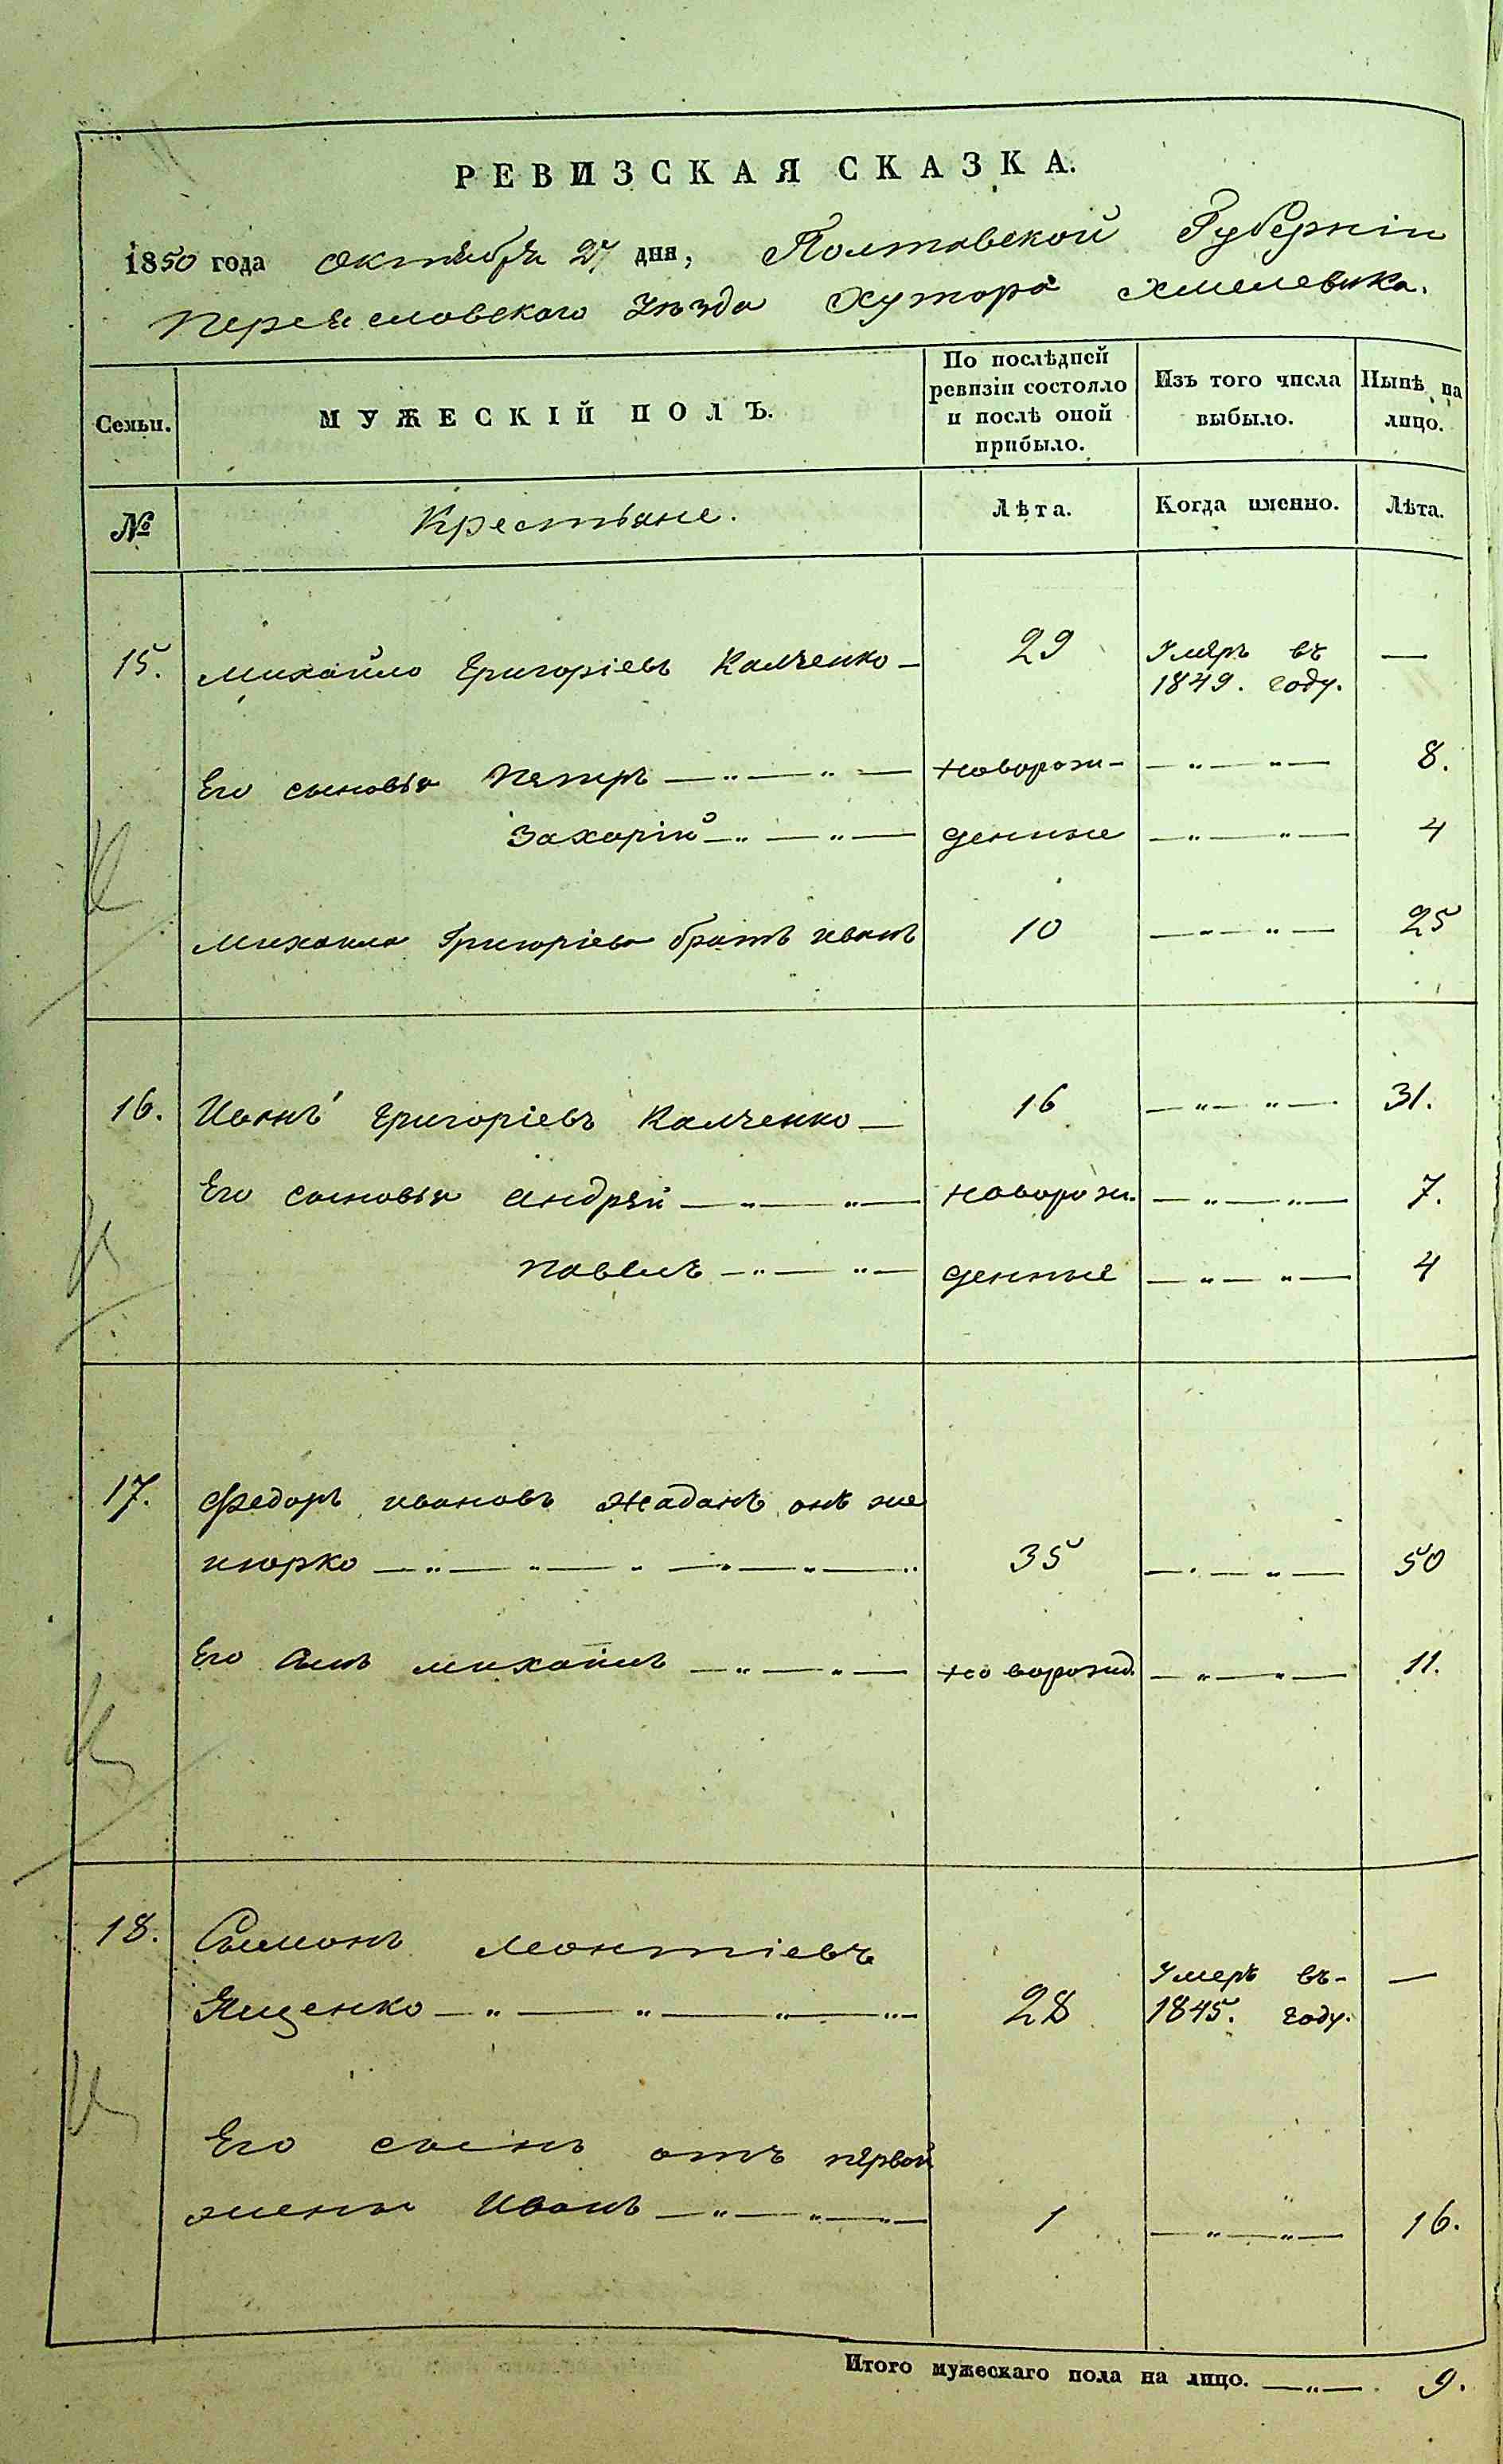 РЕВИЗСКАЯ СКАЗКА.
1850 года октября 27 дня, Полтавской Губерніи
Переясловского Уѣзда Хутора Хмелевика.
Семьи.
МУЖЕСКІЙ ПОЛЪ.
По послѣдней
ревизіи состояло
и послѣ оной
прибыло.
Изъ того числа
выбыло.
Нынѣ на
лицо.
№
Крестьяне.
Лѣта.
Когда именно.
Лѣта.
15. Михайло Григоріевъ Калченко — 29 Умеръ въ —
1849. году.
Его сыновья Петръ — „ — „ — новорож- — „ — „ — 8.
Захарій — „ — „ — денные — „ — „ — 4
Михаила Григоріева братъ Иванъ 10 — „ — „ — 25
16. Иванъ Григоріевъ Калченко — 16 — „ — „ — 31.
Его сыновья Андрей — „ — „ — новорож. — „ — „ — 7.
Павелъ — „ — „ — денные — „ — „ — 4
17. Федоръ Ивановъ Жаданъ, онъ же
Июрко — „ — „ — „ — „ — „ — 35 — „ — „ — 50
Его сынъ Михаилъ — „ — „ — новорожд. — „ — „ — 11.
18. Самонъ Леонтіевъ
Ященко — „ — „ — „ — „ — 28 Умеръ въ- —
1845. году.
Его сынъ отъ первой
жены Иванъ — „ — „ — „ — 1 — „ — „ — 16.
Итого мужескаго пола на лицо. — „ — 9.